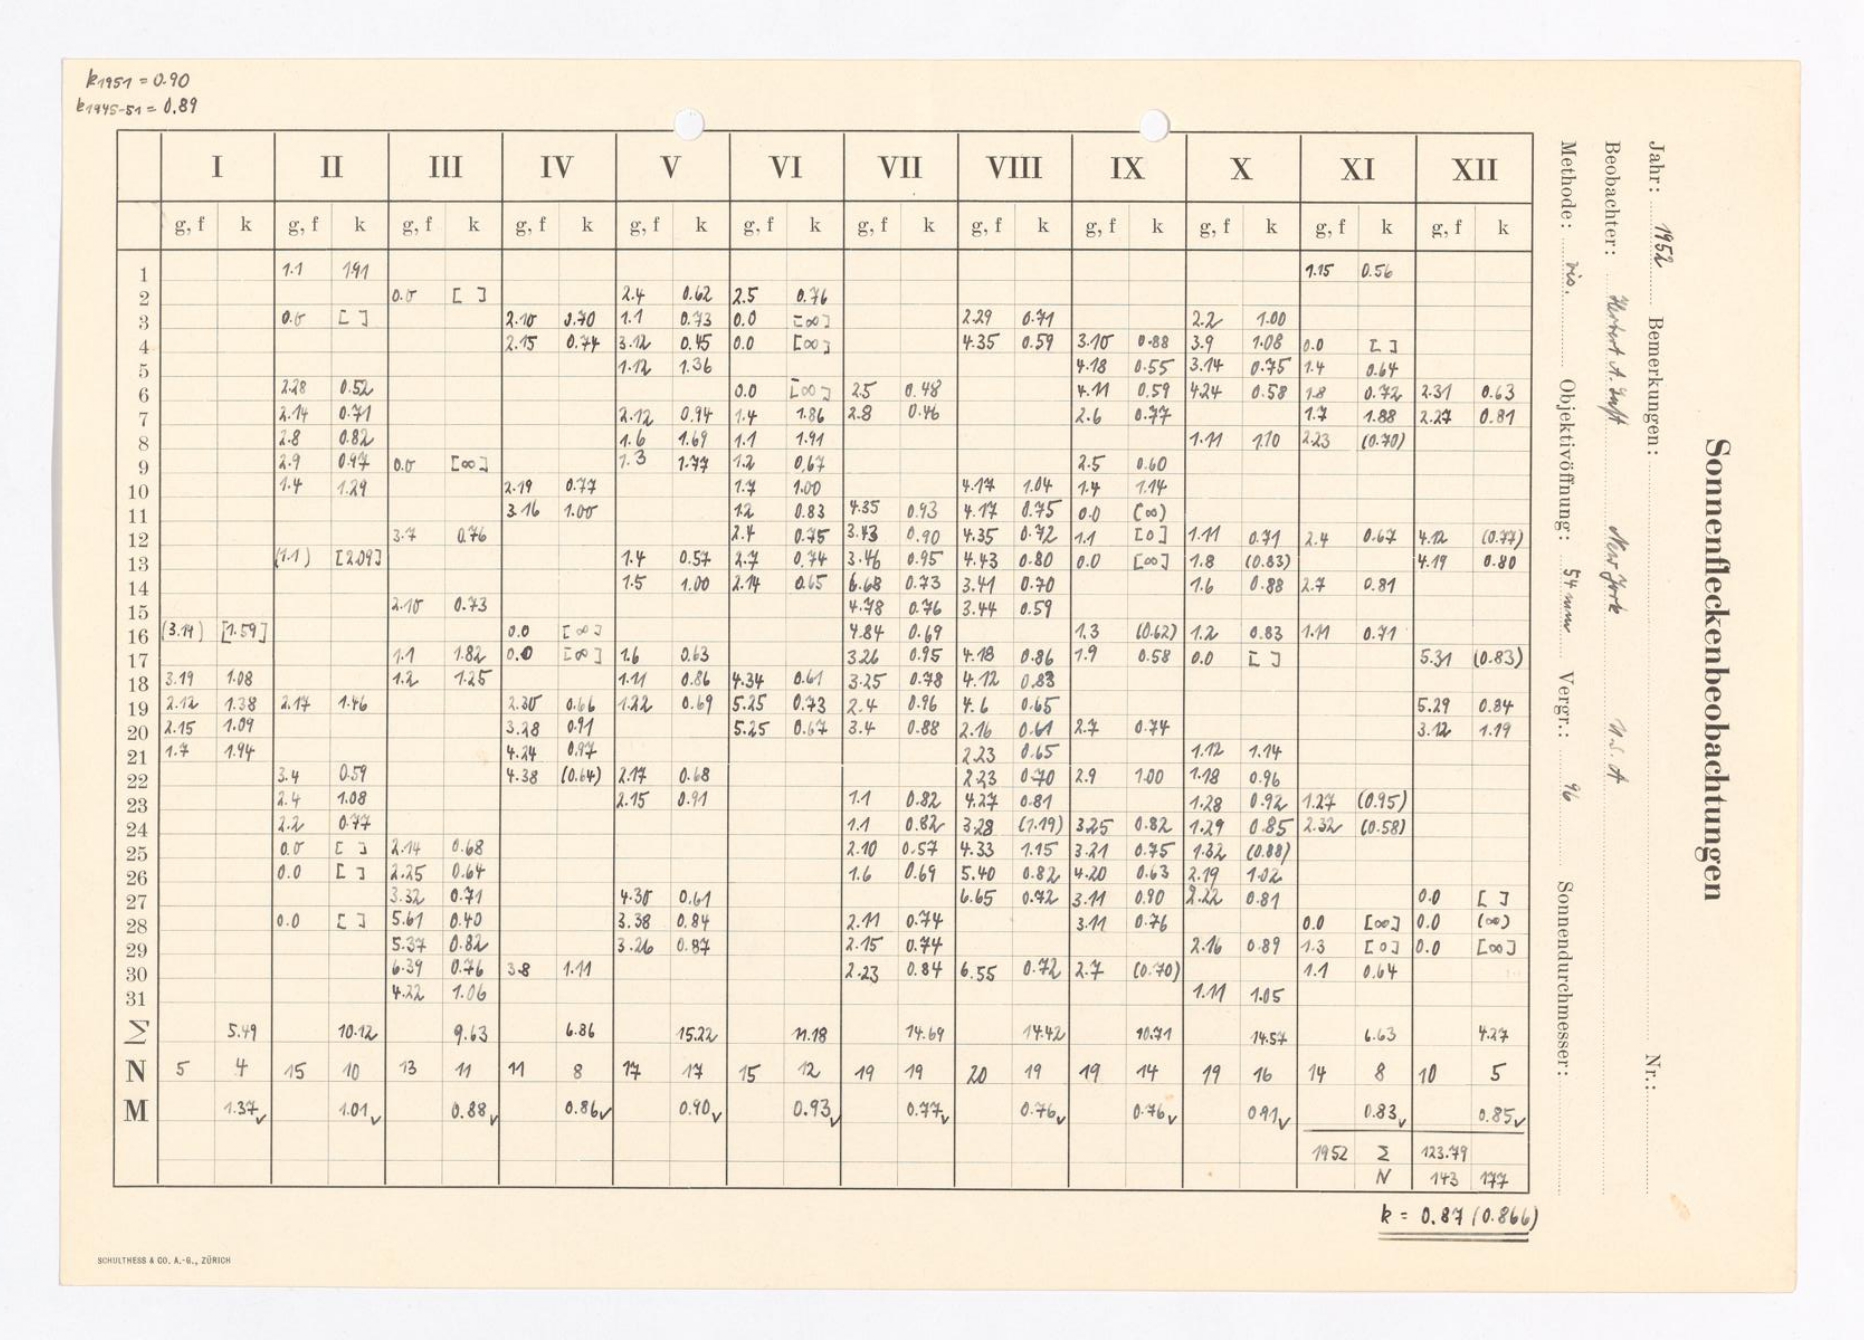 k1951 = 0.90
k1945-51 = 0.89
I II III IV V VI VII VIII IX X XI XII
g, f k g, f k g, f k g, f k g, f k g, f k g, f k g, f k g, f k g, f k g, f k g, f k
1 1.1 1.91 1.15 0.56
2 0.0 [ ] 2.4 0.62 2.5 0.76
3 0.0 [ ] 2.10 0.70 1.1 0.73 0.0 [∞] 2.29 0.71 2.2 1.00
4 2.15 0.74 3.12 0.45 0.0 [∞] 4.35 0.59 3.10 0.88 3.9 1.08 0.0 [ ]
5 1.12 1.36 4.18 0.55 3.14 0.75 1.4 0.64
6 2.28 0.52 0.0 [∞] 2.5 0.48 4.11 0.59 4.24 0.58 1.8 0.72 2.31 0.63
7 2.14 0.71 2.12 0.94 1.4 1.86 2.8 0.46 2.6 0.77 1.7 1.88 2.27 0.81
8 2.8 0.82 1.6 1.69 1.1 1.91 1.11 1.10 2.23 (0.70)
9 2.9 0.97 0.0 [∞] 1.3 1.77 1.2 0.67 2.5 0.60
10 1.4 1.29 2.19 0.77 1.7 1.00 4.17 1.04 1.4 1.14
11 3.16 1.00 1.2 0.83 4.35 0.93 4.17 0.75 0.0 (∞)
12 3.7 0.76 2.4 0.75 3.43 0.90 4.35 0.72 1.1 [0] 1.11 0.71 2.4 0.67 4.12 (0.77)
13 (1.1) [2.09] 1.4 0.57 2.7 0.74 3.46 0.95 4.43 0.80 0.0 [∞] 1.8 (0.83) 4.19 0.80
14 1.5 1.00 2.14 0.65 6.68 0.73 3.41 0.70 1.6 0.88 2.7 0.81
15 2.10 0.73 4.78 0.76 3.44 0.59
16 (3.14) [1.59] 0.0 [∞] 4.84 0.69 1.3 (0.62) 1.2 0.83 1.11 0.71
17 1.1 1.82 0.0 [∞] 1.6 0.63 3.26 0.95 4.18 0.86 1.9 0.58 0.0 [ ] 5.31 (0.83)
18 3.19 1.08 1.2 1.25 1.11 0.86 4.34 0.61 3.25 0.78 4.12 0.83
19 2.12 1.38 2.17 1.46 2.30 0.66 1.22 0.69 5.25 0.73 2.4 0.96 4.6 0.65 5.29 0.84
20 2.15 1.09 3.28 0.91 5.25 0.67 3.4 0.88 2.16 0.61 2.7 0.74 3.12 1.19
21 1.7 1.94 4.24 0.97 2.23 0.65 1.12 1.14
22 3.4 0.59 4.38 (0.64) 2.17 0.68 2.23 0.70 2.9 1.00 1.18 0.96
23 2.4 1.08 2.15 0.91 1.1 0.82 4.27 0.81 1.28 0.92 1.27 (0.95)
24 2.2 0.77 1.1 0.82 3.28 (1.19) 3.25 0.82 1.29 0.85 2.32 (0.58)
25 0.0 [ ] 2.14 0.68 2.10 0.57 4.33 1.15 3.21 0.75 1.32 (0.88)
26 0.0 [ ] 2.25 0.64 1.6 0.69 5.40 0.82 4.20 0.63 2.19 1.02
27 3.32 0.71 4.30 0.61 6.65 0.72 3.11 0.90 2.22 0.81 0.0 [ ]
28 0.0 [ ] 5.61 0.40 3.38 0.84 2.11 0.74 3.11 0.76 0.0 [∞] 0.0 (∞)
29 5.37 0.82 3.26 0.87 2.15 0.74 2.16 0.89 1.3 [0] 0.0 [∞]
30 6.39 0.76 3.8 1.11 2.23 0.84 6.55 0.72 2.7 (0.70) 1.1 0.64
31 4.22 1.06 1.11 1.05
Σ 5.49 10.12 9.63 6.86 15.22 11.18 14.69 14.42 10.71 14.57 6.63 4.27
N 5 4 15 10 13 11 11 8 17 17 15 12 19 19 20 19 19 14 19 16 14 8 10 5
M 1.37✓ 1.01✓ 0.88✓ 0.86✓ 0.90✓ 0.93✓ 0.77✓ 0.76✓ 0.76✓ 0.91✓ 0.83✓ 0.85✓
1952 Σ 123.79
N 143 177
k = 0.87 (0.866)
SCHULTHESS & CO. A.-G., ZÜRICH
Sonnenfleckenbeobachtungen
Jahr: 1952 Bemerkungen: Nr.:
Beobachter: Herbert A. Luft New York U.S.A
Methode: vis. Objektivöffnung: 54 mm Vergr.: 96 Sonnendurchmesser: